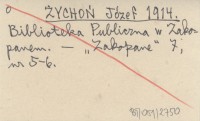 ŻYCHOŃ Józef 1914.
Biblioteka Publiczna w Zako-
panem. — „Zakopane" 7,
nr 5-6.